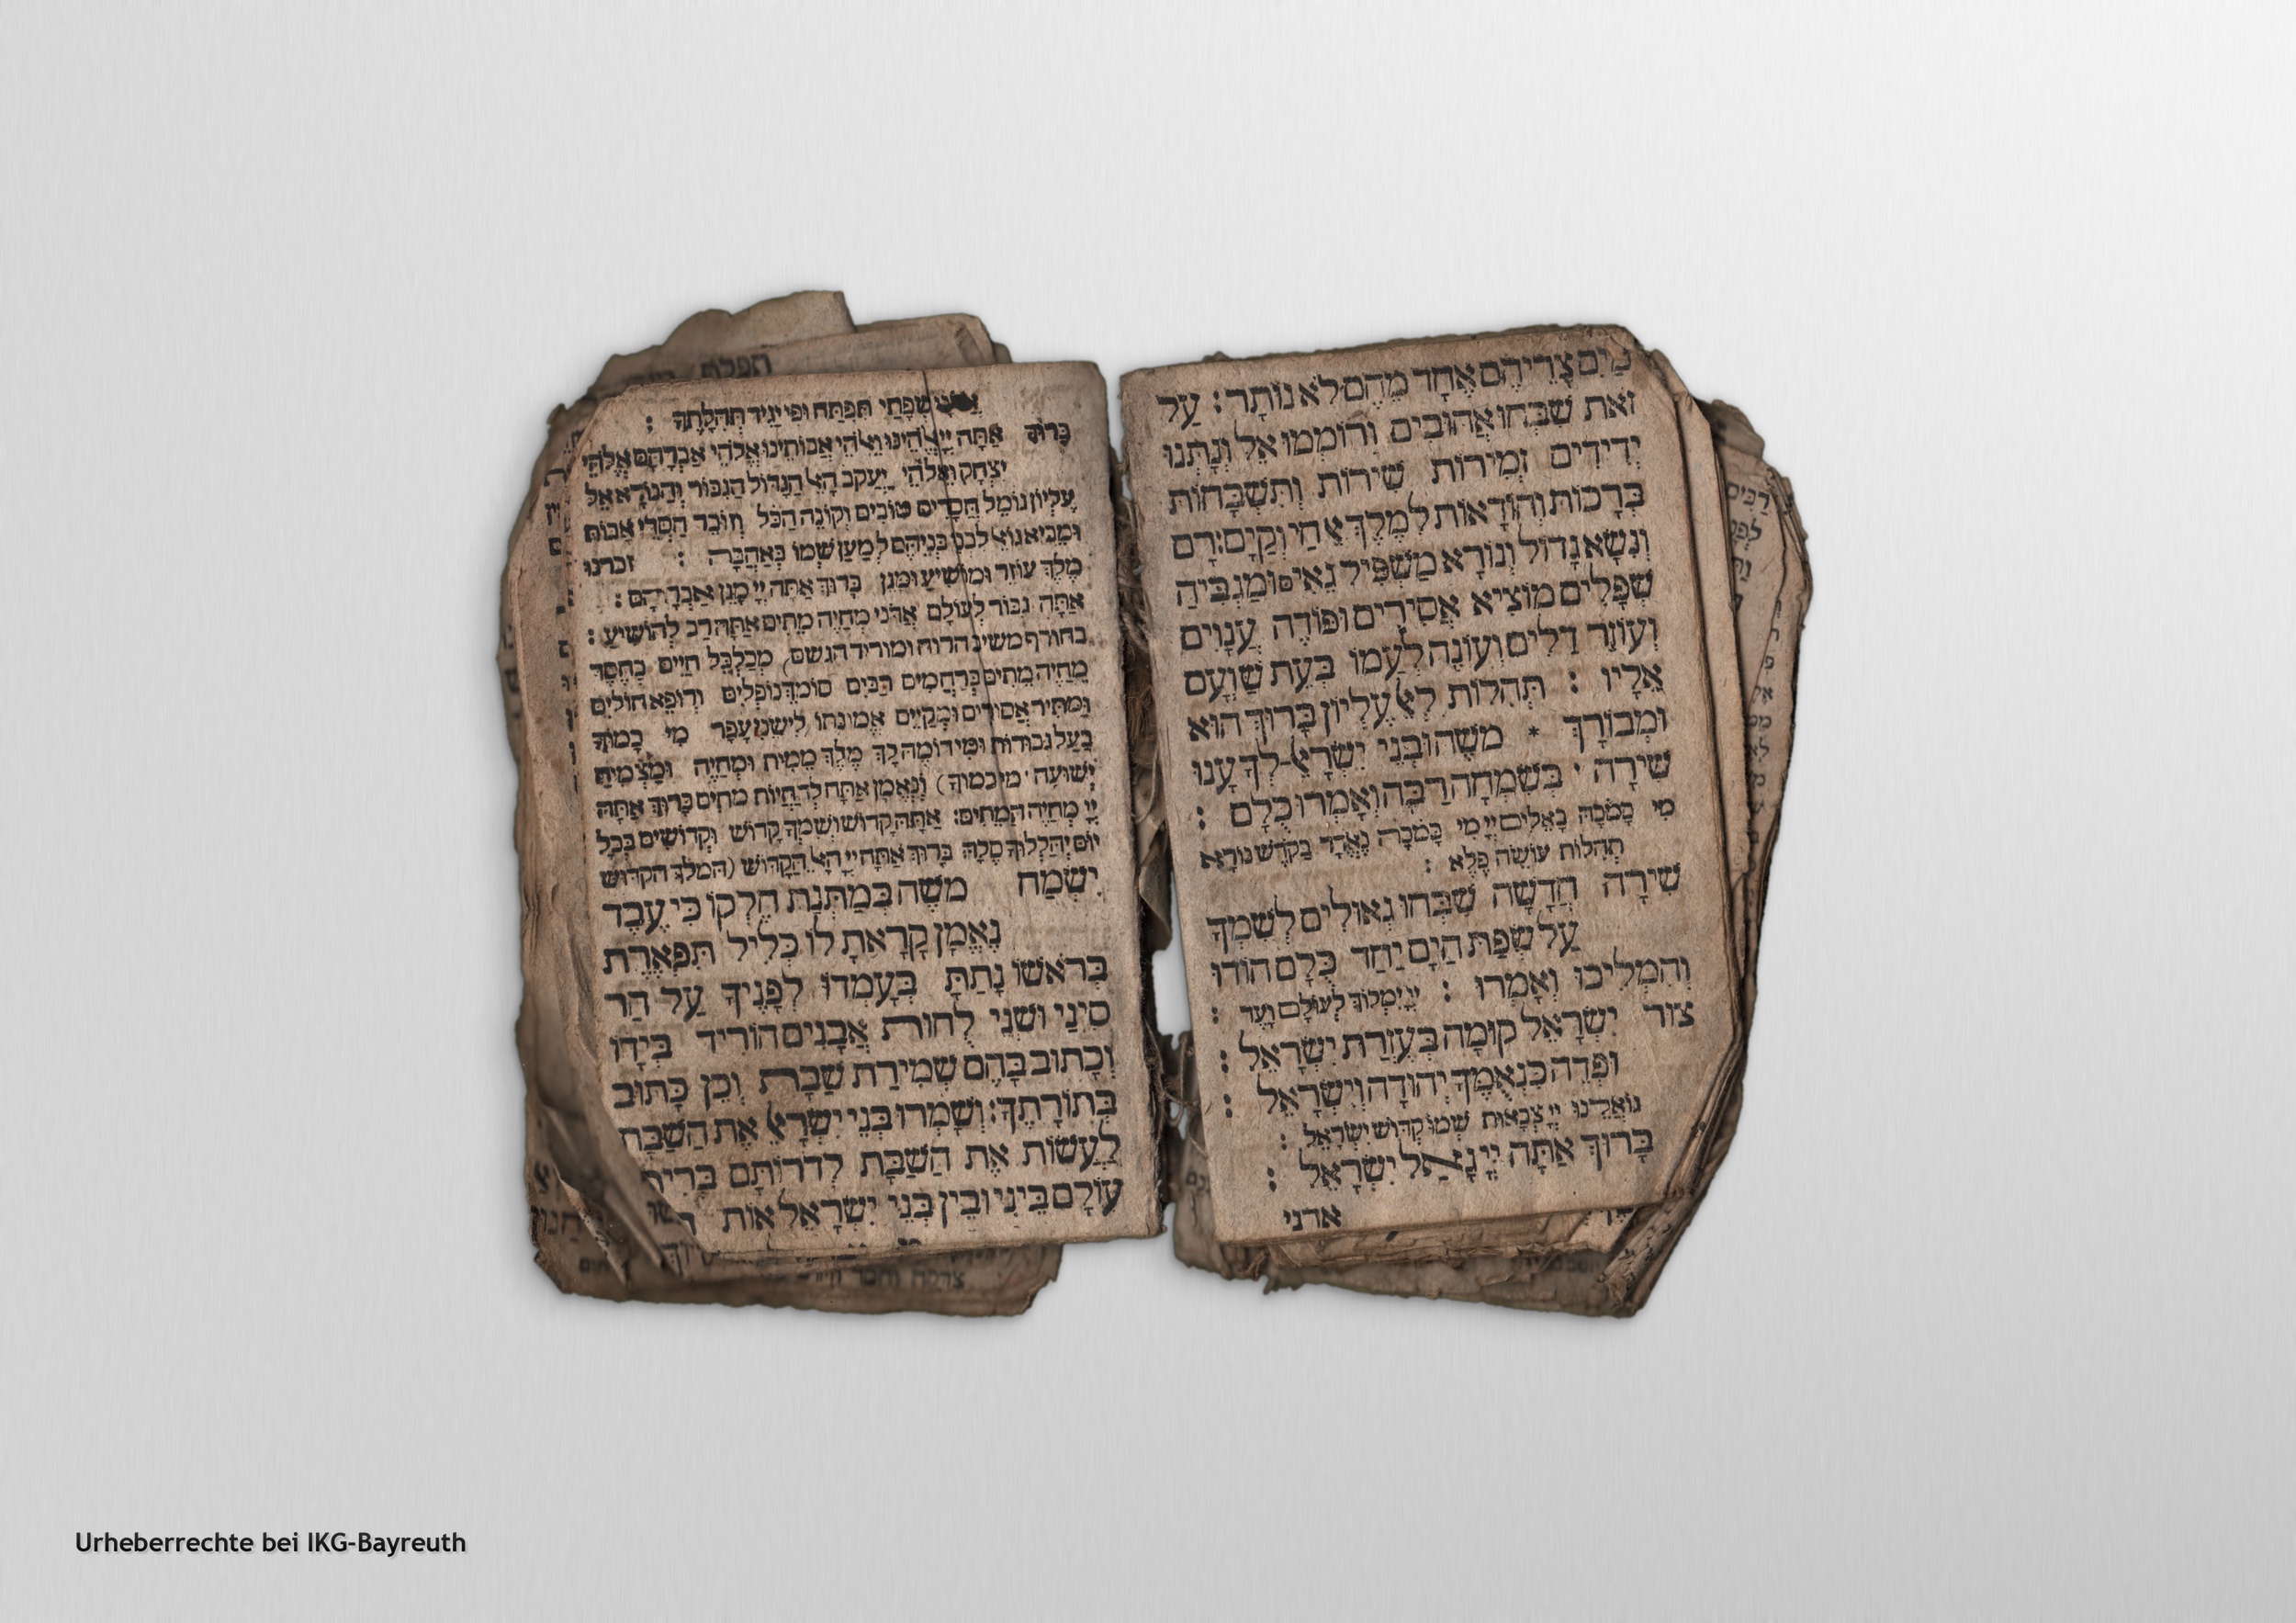 מַיִם צָרֵיהֶם אֶחָד מֵהֶם לֹא נוֹתָר : עַל
זֹאת שִׁבְּחוּ אֲהוּבִים וְרוֹמְמוּ אֵל וְנָתְנוּ
יְדִידִים זְמִירוֹת שִׁירוֹת וְתִשְׁבָּחוֹת
בְּרָכוֹת וְהוֹדָאוֹת לְמֶלֶךְ אֵל חַי וְקַיָּם : רָם
וְנִשָּׂא גָּדוֹל וְנוֹרָא מַשְׁפִּיל גֵּאִים וּמַגְבִּיהַּ
שְׁפָלִים מוֹצִיא אֲסִירִים וּפוֹדֶה עֲנָוִים
וְעוֹזֵר דַּלִּים וְעוֹנֶה לְעַמּוֹ בְּעֵת שַׁוְּעָם
אֵלָיו : תְּהִלּוֹת לְאֵל עֶלְיוֹן בָּרוּךְ הוּא
וּמְבוֹרָךְ * מֹשֶׁה וּבְנֵי יִשְׂרָאֵל לְךָ עָנוּ
שִׁירָה בְּשִׂמְחָה רַבָּה וְאָמְרוּ כֻלָּם :
מִי כָמֹכָה בָּאֵלִים יְיָ מִי כָּמֹכָה נֶאְדָּר בַּקֹּדֶשׁ נוֹרָא
תְהִלּוֹת עוֹשֵׂה פֶלֶא :
שִׁירָה חֲדָשָׁה שִׁבְּחוּ גְאוּלִים לְשִׁמְךָ
עַל שְׂפַת הַיָּם יַחַד כֻּלָּם הוֹדוּ
וְהִמְלִיכוּ וְאָמְרוּ : יְיָ יִמְלוֹךְ לְעוֹלָם וָעֶד :
צוּר יִשְׂרָאֵל קוּמָה בְּעֶזְרַת יִשְׂרָאֵל :
וּפְדֵה כִנְאֻמֶךָ יְהוּדָה וְיִשְׂרָאֵל :
גּוֹאֲלֵנוּ יְיָ צְבָאוֹת שְׁמוֹ קְדוֹשׁ יִשְׂרָאֵל :
בָּרוּךְ אַתָּה יְיָ גָּאַל יִשְׂרָאֵל :
אדני
שְׂפָתַי תִּפְתָּח וּפִי יַגִּיד תְּהִלָּתֶךָ :
בָּרוּךְ אַתָּה יְיָ אֱלֹהֵינוּ וֵאלֹהֵי אֲבוֹתֵינוּ אֱלֹהֵי אַבְרָהָם אֱלֹהֵי
יִצְחָק וֵאלֹהֵי יַעֲקֹב הָאֵל הַגָּדוֹל הַגִּבּוֹר וְהַנּוֹרָא אֵל
עֶלְיוֹן גּוֹמֵל חֲסָדִים טוֹבִים וְקוֹנֵה הַכֹּל וְזוֹכֵר חַסְדֵי אָבוֹת
וּמֵבִיא גוֹאֵל לִבְנֵי בְנֵיהֶם לְמַעַן שְׁמוֹ בְּאַהֲבָה : זכרנו
מֶלֶךְ עוֹזֵר וּמוֹשִׁיעַ וּמָגֵן בָּרוּךְ אַתָּה יְיָ מָגֵן אַבְרָהָם :
אַתָּה גִּבּוֹר לְעוֹלָם אֲדֹנָי מְחַיֵּה מֵתִים אַתָּה רַב לְהוֹשִׁיעַ :
בחורף משיב הרוח ומוריד הגשם) מְכַלְכֵּל חַיִּים בְּחֶסֶד
מְחַיֵּה מֵתִים בְּרַחֲמִים רַבִּים סוֹמֵךְ נוֹפְלִים וְרוֹפֵא חוֹלִים
וּמַתִּיר אֲסוּרִים וּמְקַיֵּים אֱמוּנָתוֹ לִישֵׁנֵי עָפָר מִי כָמוֹךָ
בַּעַל גְּבוּרוֹת וּמִי דוֹמֶה לָּךְ מֶלֶךְ מֵמִית וּמְחַיֶּה וּמַצְמִיחַ
יְשׁוּעָה מי כמוך) וְנֶאֱמָן אַתָּה לְהַחֲיוֹת מֵתִים בָּרוּךְ אַתָּה
יְיָ מְחַיֵּה הַמֵּתִים : אַתָּה קָדוֹשׁ וְשִׁמְךָ קָדוֹשׁ וּקְדוֹשִׁים בְּכָל
יוֹם יְהַלְלוּךָ סֶּלָה בָּרוּךְ אַתָּה יְיָ הָאֵל הַקָּדוֹשׁ (המלך הקדוש
יִשְׂמַח מֹשֶׁה בְּמַתְּנַת חֶלְקוֹ כִּי עֶבֶד
נֶאֱמָן קָרָאתָ לּוֹ כְּלִיל תִּפְאֶרֶת
בְּרֹאשׁוֹ נָתַתָּ בְּעָמְדוֹ לְפָנֶיךָ עַל הַר
סִינַי וּשְׁנֵי לֻחוֹת אֲבָנִים הוֹרִיד בְּיָדוֹ
וְכָתוּב בָּהֶם שְׁמִירַת שַׁבָּת וְכֵן כָּתוּב
בְּתוֹרָתֶךָ : וְשָׁמְרוּ בְנֵי יִשְׂרָאֵל אֶת הַשַּׁבָּת
לַעֲשׂוֹת אֶת הַשַּׁבָּת לְדֹרוֹתָם בְּרִית
עוֹלָם בֵּינִי וּבֵין בְּנֵי יִשְׂרָאֵל אוֹת
Urheberrechte bei IKG-Bayreuth